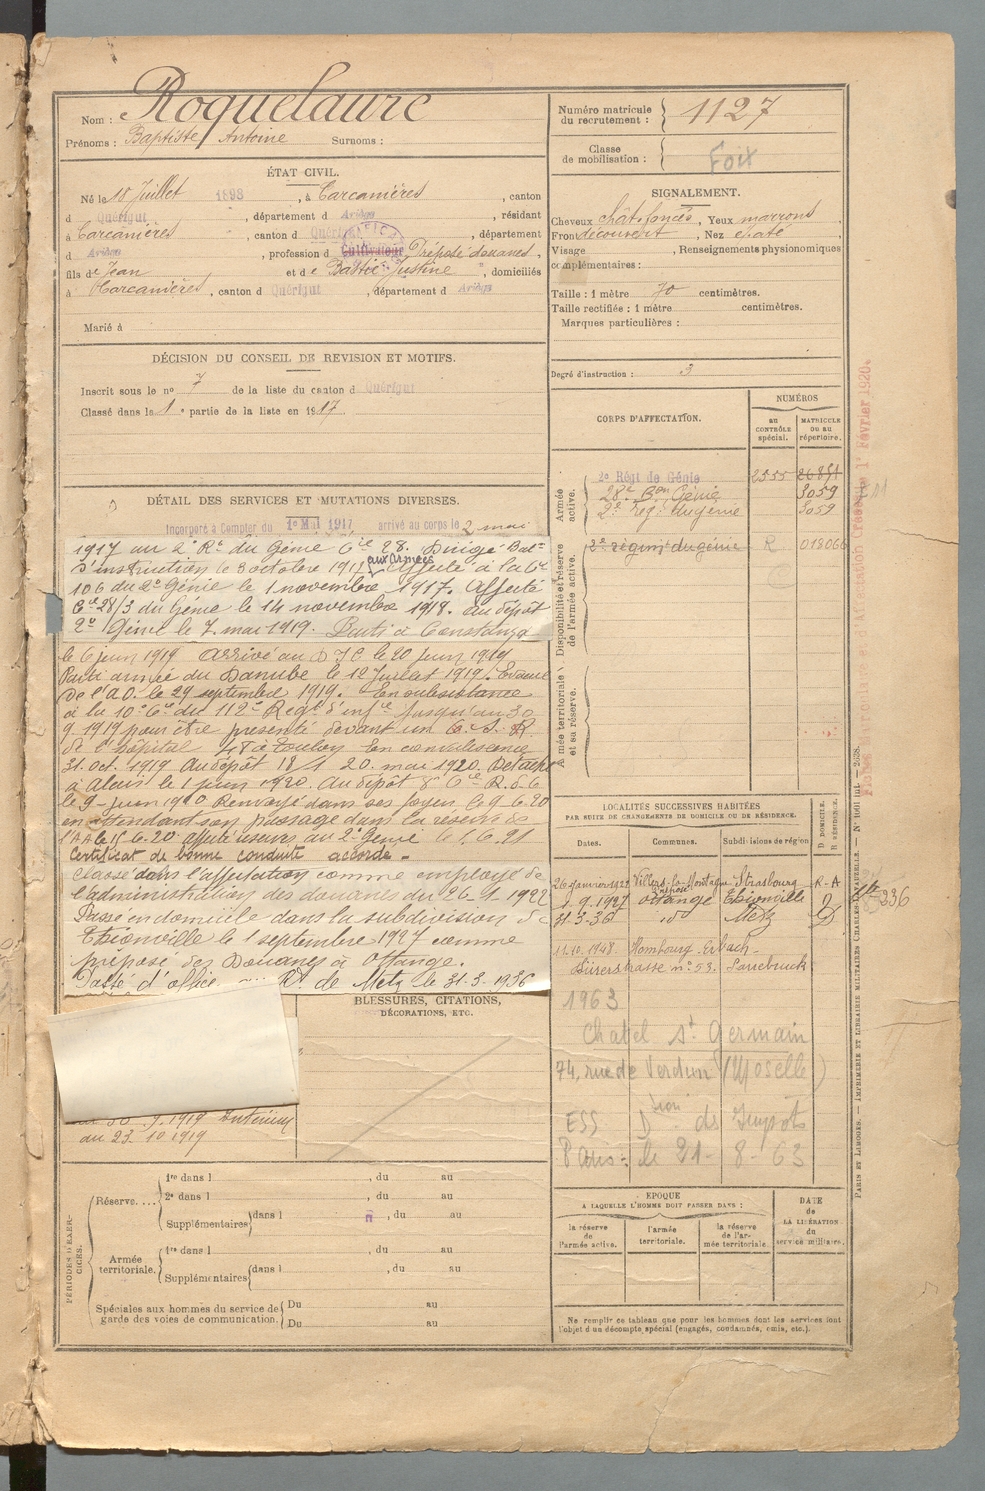 Nom : Roquelaure
Prénoms : Baptiste Antoine Surnoms :
ÉTAT CIVIL.
Né le 18 Juillet 1898, à Carcanières, canton
d Quérigut, département d Ariège, résidant
à Carcanières, canton d Quérigut, département
d Ariège, profession d Cultivateur Préposé douanes,
fils de Jean et de Bastié Justine, domiciliés
à Carcanières, canton d Quérigut, département d Ariège
Marié à
DÉCISION DU CONSEIL DE REVISION ET MOTIFS.
Inscrit sous le n° 7 de la liste du canton d Quérigut
Classé dans la 1e partie de la liste en 1917.
DÉTAIL DES SERVICES ET MUTATIONS DIVERSES.
Incorporé à Compter du 1er Mai 1917 arrivé au corps le 2 mai
1917 au 2e Rt du Génie Cie 28. Dirigé Baton
D'instruction le 8 octobre 1917 aux Armées affecté à la Cie
106 du 2e Génie le 1 novembre 1917. Affecté
Cie 28/3 du Génie le 14 novembre 1918. au dépôt
2e Génie le 7 mai 1919. Parti à Constanza
le 6 juin 1919 arrivé au D I C le 20 juin 1919
Parti armée du Danube le 12 Juillet 1919. Evacué
de l'A O. le 29 septembre 1919. En subsistance
à la 10e Cie du 112e Régt d'infie jusqu'au 30
9 1919 pour être présenté devant un C. S. R.
de l'hôpital 48 à Toulon En convalescence
31. oct. 1919 Au dépôt 18/1 20 mai 1920. Détaché
à Alais le 1 juin 1920. Au dépôt 8e Cie R. d. G
le 9 juin 1920 Renvoyé dans ses foyers le 9.6.20
en attendant son passage dans la réserve de
l'AA le 15.6.20 affecté réserve au 2e Génie le 1.6.21
Certificat de bonne conduite accordé -
Classé dans l'affectation comme employé de
l'administration des douanes du 26-1-1922
Passé en domicile dans la subdivision de
Thionville le 1 septembre 1927 comme
préposé des Douanes à Ottange.
Passé d'office Rt de Metz le 31-3-1936
BLESSURES, CITATIONS,
DÉCORATIONS, ETC.
1919 Intérieur
au 23.10.1919
PÉRIODES D'EXERCICES.
Réserve....
1re dans l , du au
2e dans l , du au
Supplémentaires dans l , du au
Armée territoriale.
1re dans l , du au
Supplémentaires dans l , du au
Spéciales aux hommes du service de garde des voies de communication.
Du au
Du au
Numéro matricule du recrutement : 1127
Classe de mobilisation : Foix
SIGNALEMENT.
Cheveux chât. foncés, Yeux marrons
Front découvert, Nez
Visage , Renseignements physionomiques
complémentaires :
Taille : 1 mètre 70 centimètres.
Taille rectifiée : 1 mètre centimètres.
Marques particulières :
Degré d'instruction : 3
CORPS D'AFFECTATION.
NUMÉROS
AU CONTRÔLE spécial.
MATRICULE OU AU répertoire.
Armée active.
2e Régt de Génie 2555
28e Bon Génie 3059
2e Régt du génie 3059
Disponibilité et réserve de l'armée active.
2e régimt du génie R 018066
Armée territoriale et sa réserve.
LOCALITÉS SUCCESSIVES HABITÉES
PAR SUITE DE CHANGEMENTS DE DOMICILE OU DE RÉSIDENCE.
D DOMICILE.
R RÉSIDENCE.
Dates. Communes. Subdivisions de région
26 janvier 1922 Villers-la-Montagne Strasbourg R-A
1.9.1927 Ottange Thionville D
31-3-36 do Metz D
11.10.1948 Hombourg Erbach -
Dürerstrasse n° 53. Sarrebruck
1963
Chatel St Germain
74, rue de Verdun (Moselle)
ESS Dtion des Impôts
Paris : le 21-8-63
EPOQUE
A LAQUELLE L'HOMME DOIT PASSER DANS :
la réserve de l'armée active.
l'armée territoriale.
la réserve de l'armée territoriale.
DATE de LA LIBÉRATION du service militaire.
Ne remplir ce tableau que pour les hommes dont les services font
l'objet d'un décompte spécial (engagés, condamnés, omis, etc.).
1er Février 1920.
236
PARIS ET LIMOGES. — IMPRIMERIE ET LIBRAIRIE MILITAIRES CHARLES-LAVAUZELLE.